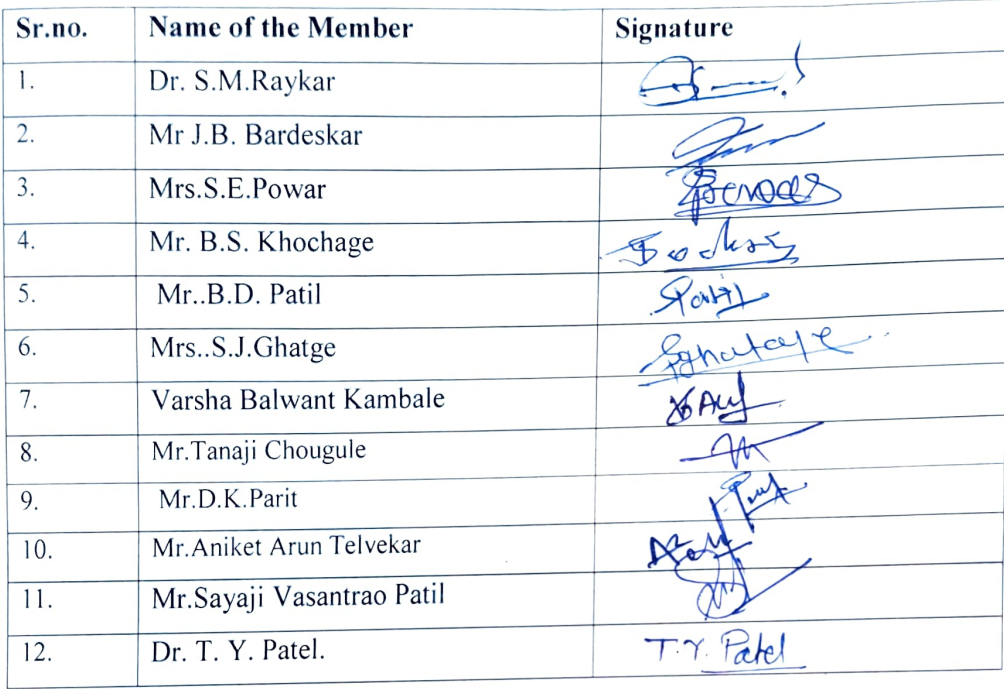 Sr.no. Name of the Member Signature
1. Dr. S.M.Raykar
2. Mr J.B. Bardeskar
3. Mrs.S.E.Powar
4. Mr. B.S. Khochage
5. Mr..B.D. Patil Patil
6. Mrs..S.J.Ghatge
7. Varsha Balwant Kambale
8. Mr.Tanaji Chougule
9. Mr.D.K.Parit
10. Mr.Aniket Arun Telvekar
11. Mr.Sayaji Vasantrao Patil
12. Dr. T. Y. Patel. T.Y. Patel